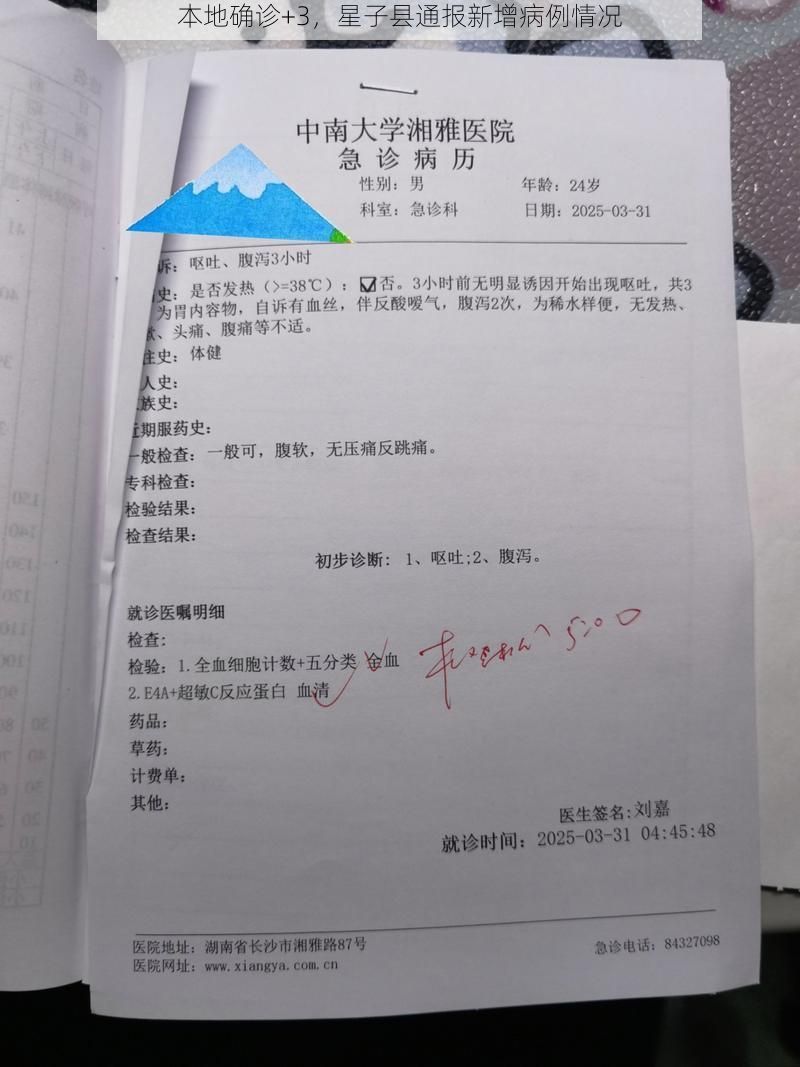 本地确诊+3，星子县通报新增病例情况
中南大学湘雅医院
急诊病历
性别：男 年龄：24岁
科室：急诊科 日期：2025-03-31
诉：呕吐、腹泻3小时
史：是否发热（>=38℃）：☑否。3小时前无明显诱因开始出现呕吐，共3
为胃内容物，自诉有血丝，伴反酸嗳气，腹泻2次，为稀水样便，无发热、
、头痛、腹痛等不适。
往史：体健
人史：
族史：
近期服药史：
一般检查：一般可，腹软，无压痛反跳痛。
专科检查：
检验结果：
检查结果：
初步诊断： 1、呕吐;2、腹泻。
就诊医嘱明细
检查：
检验：1.全血细胞计数+五分类 全血
2.E4A+超敏C反应蛋白 血清
药品：
草药：
计费单：
其他：
医生签名:刘嘉
就诊时间：2025-03-31 04:45:48
医院地址：湖南省长沙市湘雅路87号 急诊电话：84327098
医院网址：www.xiangya.com.cn